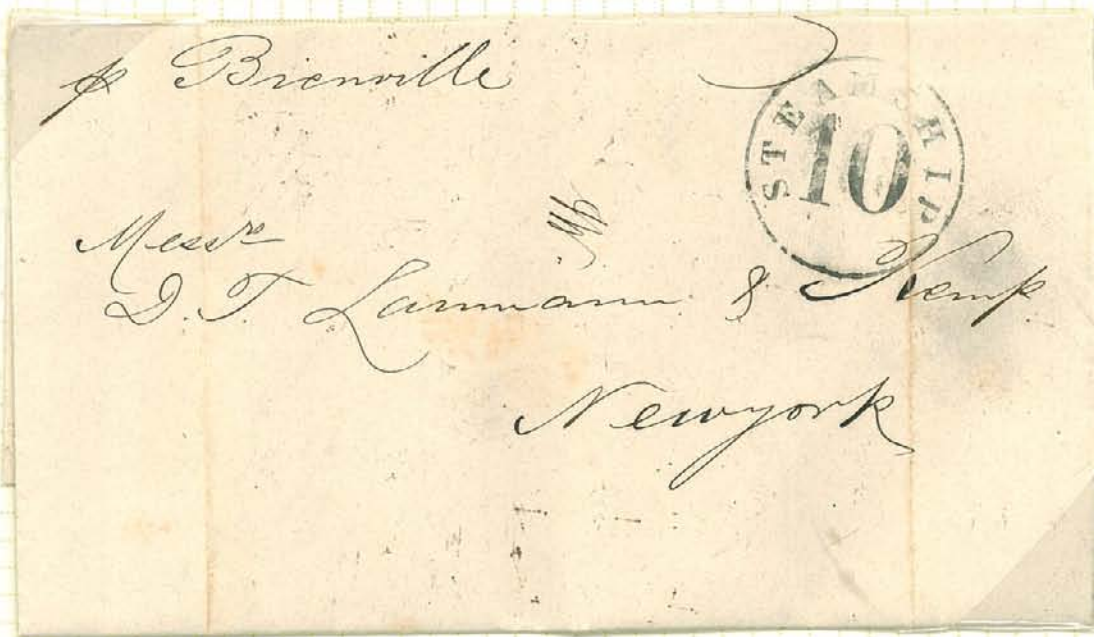 p Bienville
STEAMSHIP
10
Messrs
D. T. Lanmann & Kemp.
Newyork